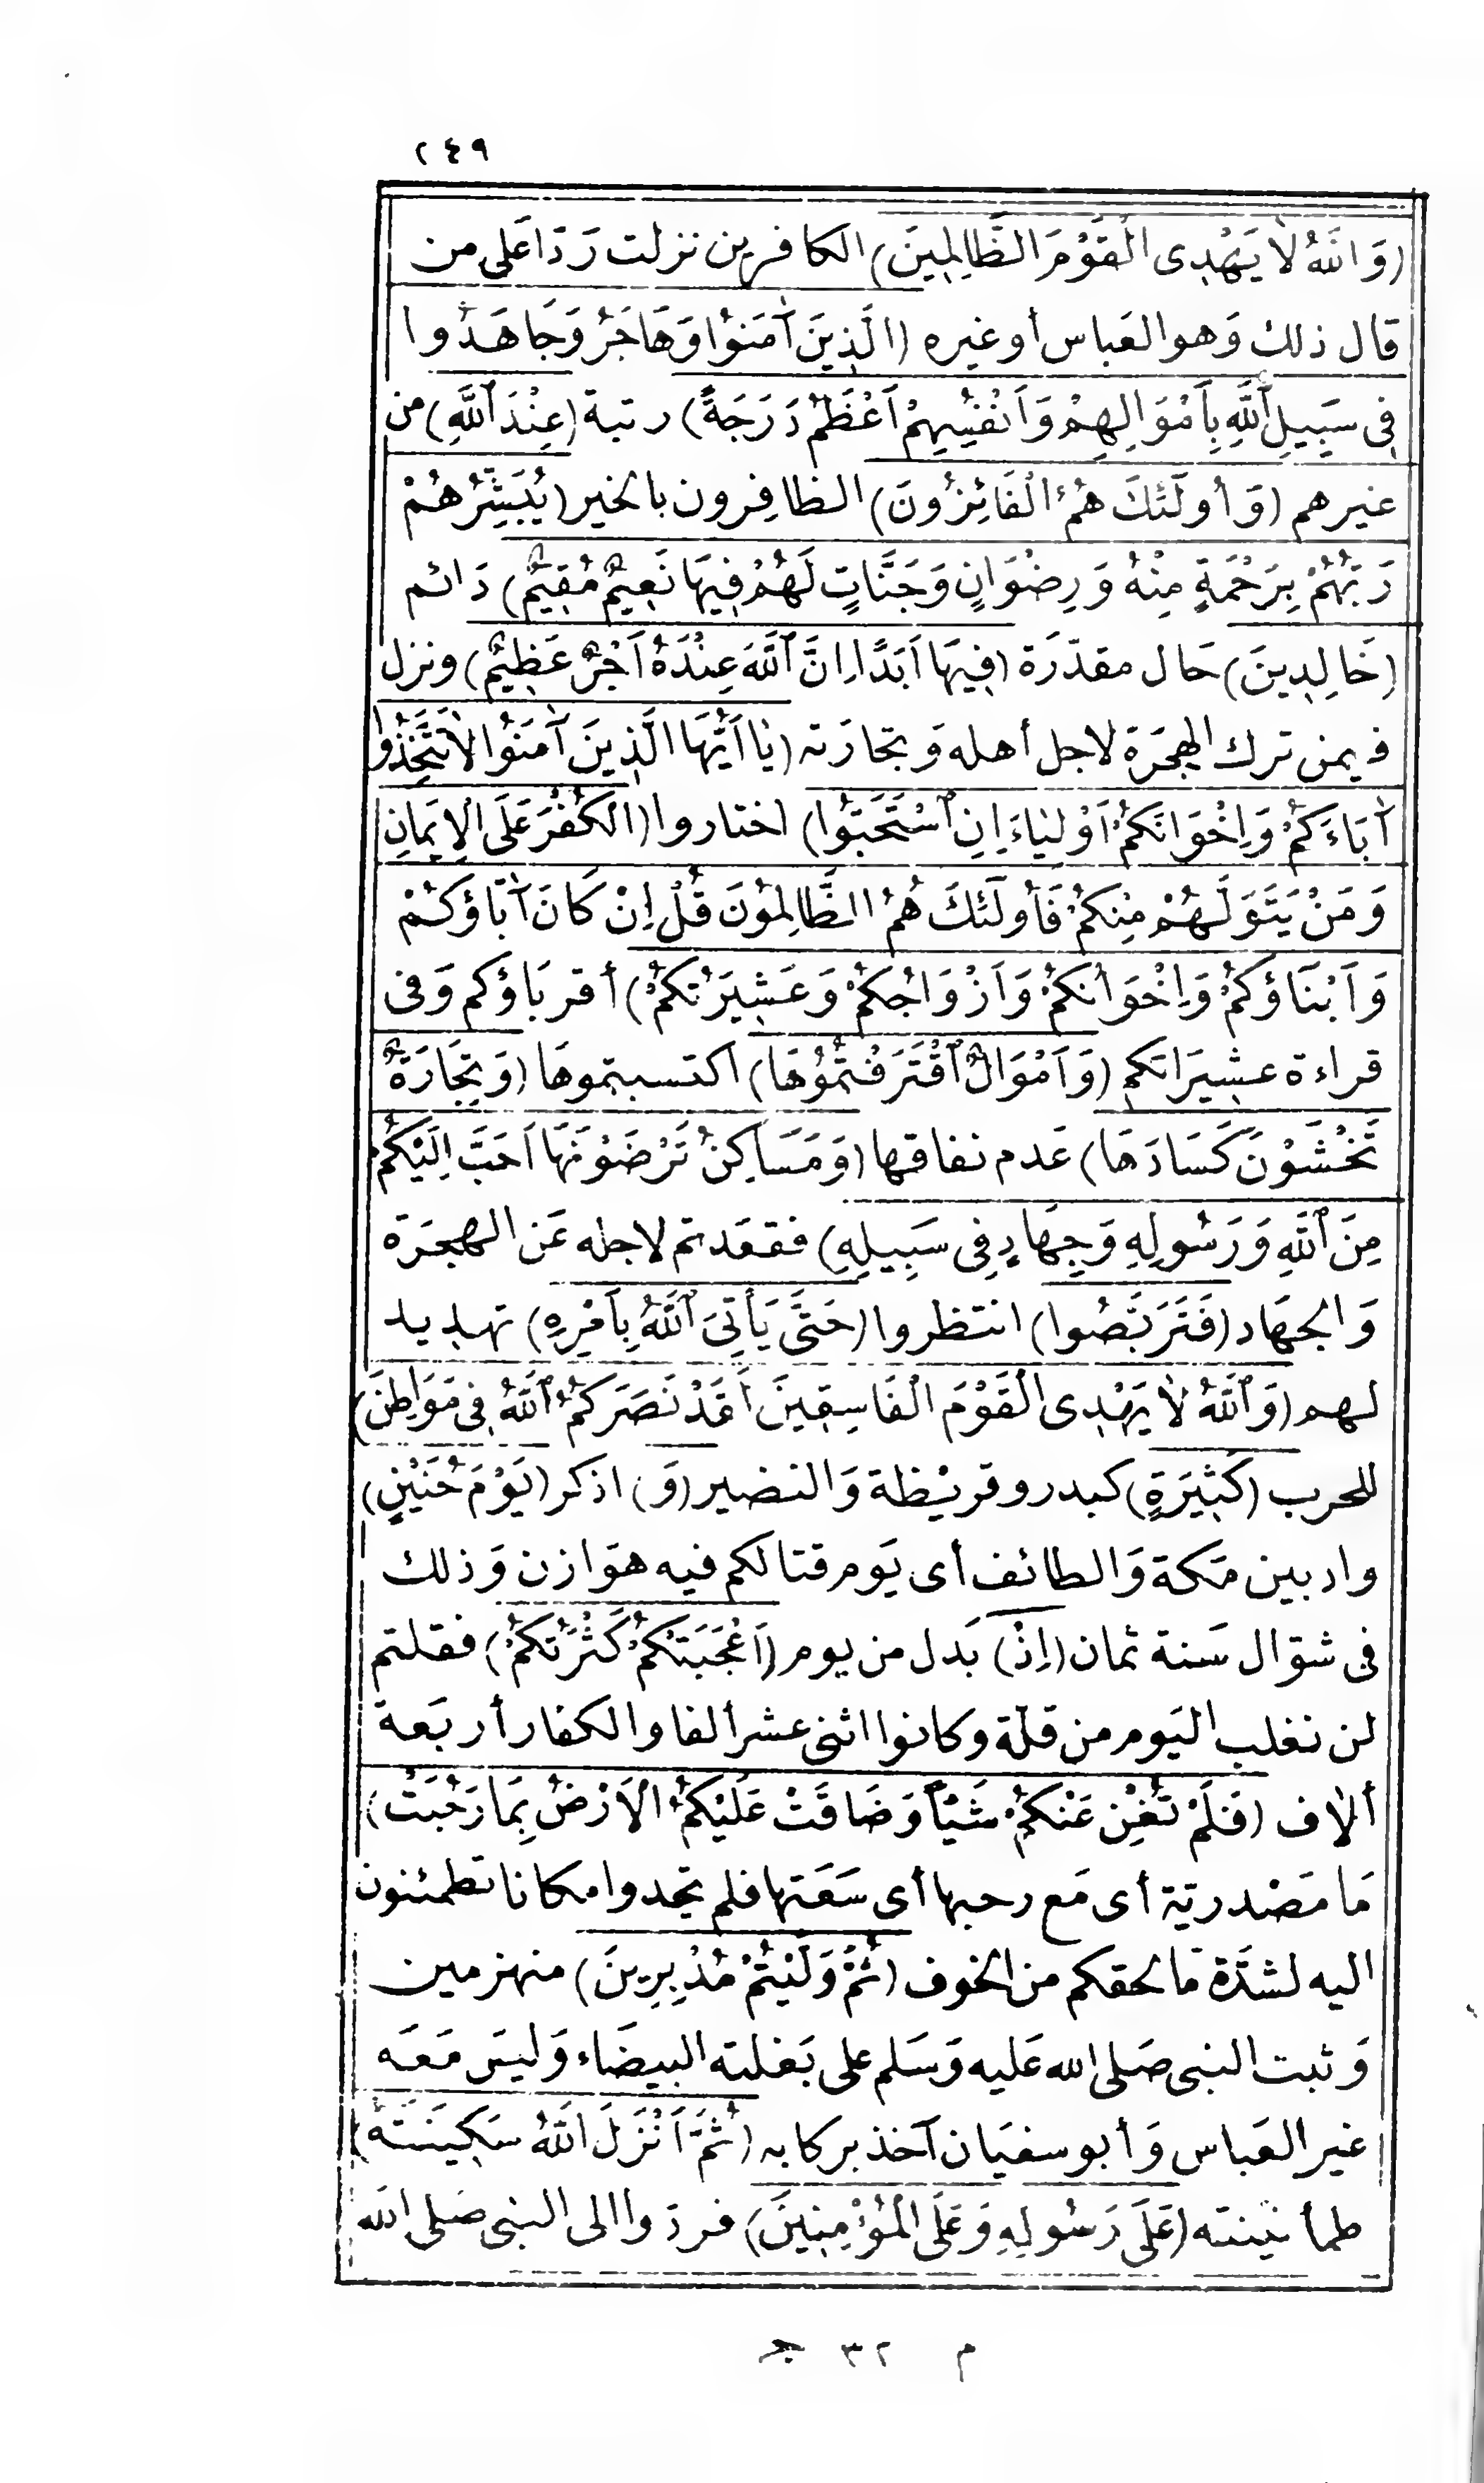 ٢٤٩
(وَاللَّهُ لَا يَهْدِى الْقَوْمَ الظَّالِمِينَ) الكافرين نزلت رَدّا عَلى من
قال ذلك وَهو العَباس أو غيره (الَّذِينَ آمَنُوا وَهَاجَرُ وَجَاهَدُوا
فِى سَبِيلِ ٱللَّهِ بِأَمْوَالِهِمْ وَأَنْفُسِهِمْ أَعْظَمُ دَرَجَةً) رتبة (عِنْدَ ٱللَّهِ) من
غيرهم (وَأُولَٰئِكَ هُمُ الْفَائِزُونَ) الظافِرون بالخير (يُبَشِّرُهُمْ
رَبُّهُمْ بِرَحْمَةٍ مِنْهُ وَرِضْوَانٍ وَجَنَّاتٍ لَهُمْ فِيهَا نَعِيمٌ مُقِيمٌ) دَائم
(خَالِدِينَ) حَال مقدّرَة (فِيهَا أَبَدًا اِنَّ ٱللَّهَ عِنْدَهُ أَجْرٌ عَظِيمٌ) ونزل
فيمن ترك الهجرَة لاجل أهله وَتجارَته (يَا أَيُّهَا الَّذِينَ آمَنُوا لَا تَتَّخِذُوا
آبَاءَكُمْ وَاِخْوَانَكُمْ أَوْلِيَاءَ اِنِ ٱسْتَحَبُّوا) اختاروا (الْكُفْرَ عَلَى الْاِيمَانِ
وَمَنْ يَتَوَلَّهُمْ مِنْكُمْ فَأُولَٰئِكَ هُمُ الظَّالِمُونَ قُلْ اِنْ كَانَ آبَاؤُكُمْ
وَأَبْنَاؤُكُمْ وَاِخْوَانُكُمْ وَأَزْوَاجُكُمْ وَعَشِيرَتُكُمْ) أقربَاؤكم وَفى
قراءة عشيرَاتكم (وَأَمْوَالٌ ٱقْتَرَفْتُمُوهَا) اكتسبتموهَا (وَتِجَارَةٌ
تَخْشَوْنَ كَسَادَهَا) عَدم نفاقها (وَمَسَاكِنُ تَرْضَوْنَهَا أَحَبَّ اِلَيْكُمْ
مِنَ ٱللَّهِ وَرَسُولِهِ وَجِهَادٍ فِى سَبِيلِهِ) فقعَدتم لاجله عَن الهجرَة
وَالجهَاد (فَتَرَبَّصُوا) انتظروا (حَتَّى يَأْتِىَ ٱللَّهُ بِأَمْرِهِ) تهديد
لهم (وَٱللَّهُ لَا يَهْدِى الْقَوْمَ الْفَاسِقِينَ لَقَدْ نَصَرَكُمُ ٱللَّهُ فِى مَوَاطِنَ)
للحرب (كَثِيرَةٍ) كبدر وقريْظة وَالنضير (وَ) اذكر (يَوْمَ حُنَيْنٍ)
واد بين مَكة وَالطائف أى يَوم قتالكم فيه هوَازن وَذلك
فى شوّال سَنة ثمان (اِذْ) بَدل من يوم (أَعْجَبَتْكُمْ كَثْرَتُكُمْ) فقلتم
لن نغلب اليَوم من قلّة وكانوا اثنى عشر ألفا والكفار أربَعة
ألاف (فَلَمْ تُغْنِ عَنْكُمْ شَيْئًا وَضَاقَتْ عَلَيْكُمُ الْأَرْضُ بِمَا رَحُبَتْ)
مَا مَصْدريّة أى مَع رحبها أى سَعَتها فلم تجدوا مكانا تطمئنون
اليه لشدّة مَا لحقكم من الخوف (ثُمَّ وَلَّيْتُمْ مُدْبِرِينَ) منهزمين
وَثبت النبى صَلى الله عَليه وَسَلم على بَغلته البيضَاء وَليسَ مَعَه
غير العَباس وَأبو سفيَان آخذ بركابه (ثُمَّ أَنْزَلَ ٱللَّهُ سَكِينَتَهُ)
طمأنينته (عَلَى رَسُولِهِ وَعَلَى الْمُؤْمِنِينَ) فردّوا الى النبى صَلى الله
م ٣٢ ج